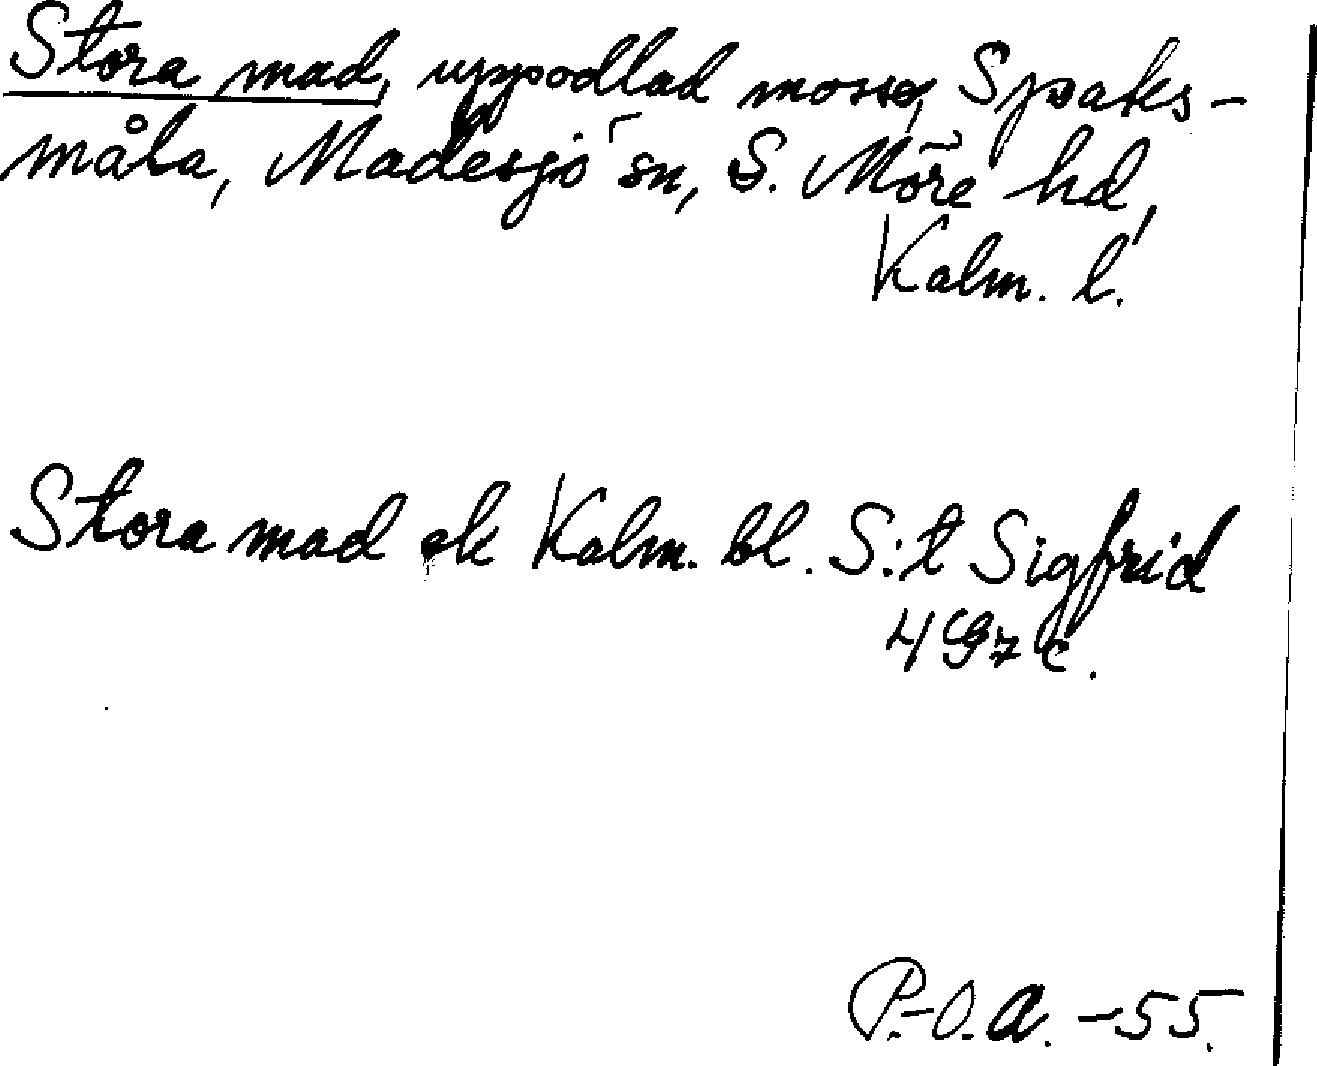 Stora mad, uppodlad mosse, Spaks-
måla, Madesjö sn, S. Möre hd,
Kalm. l.
Stora mad ek Kalm. bl. S:t Sigfrid
497 c.
P.-O.A. -55.